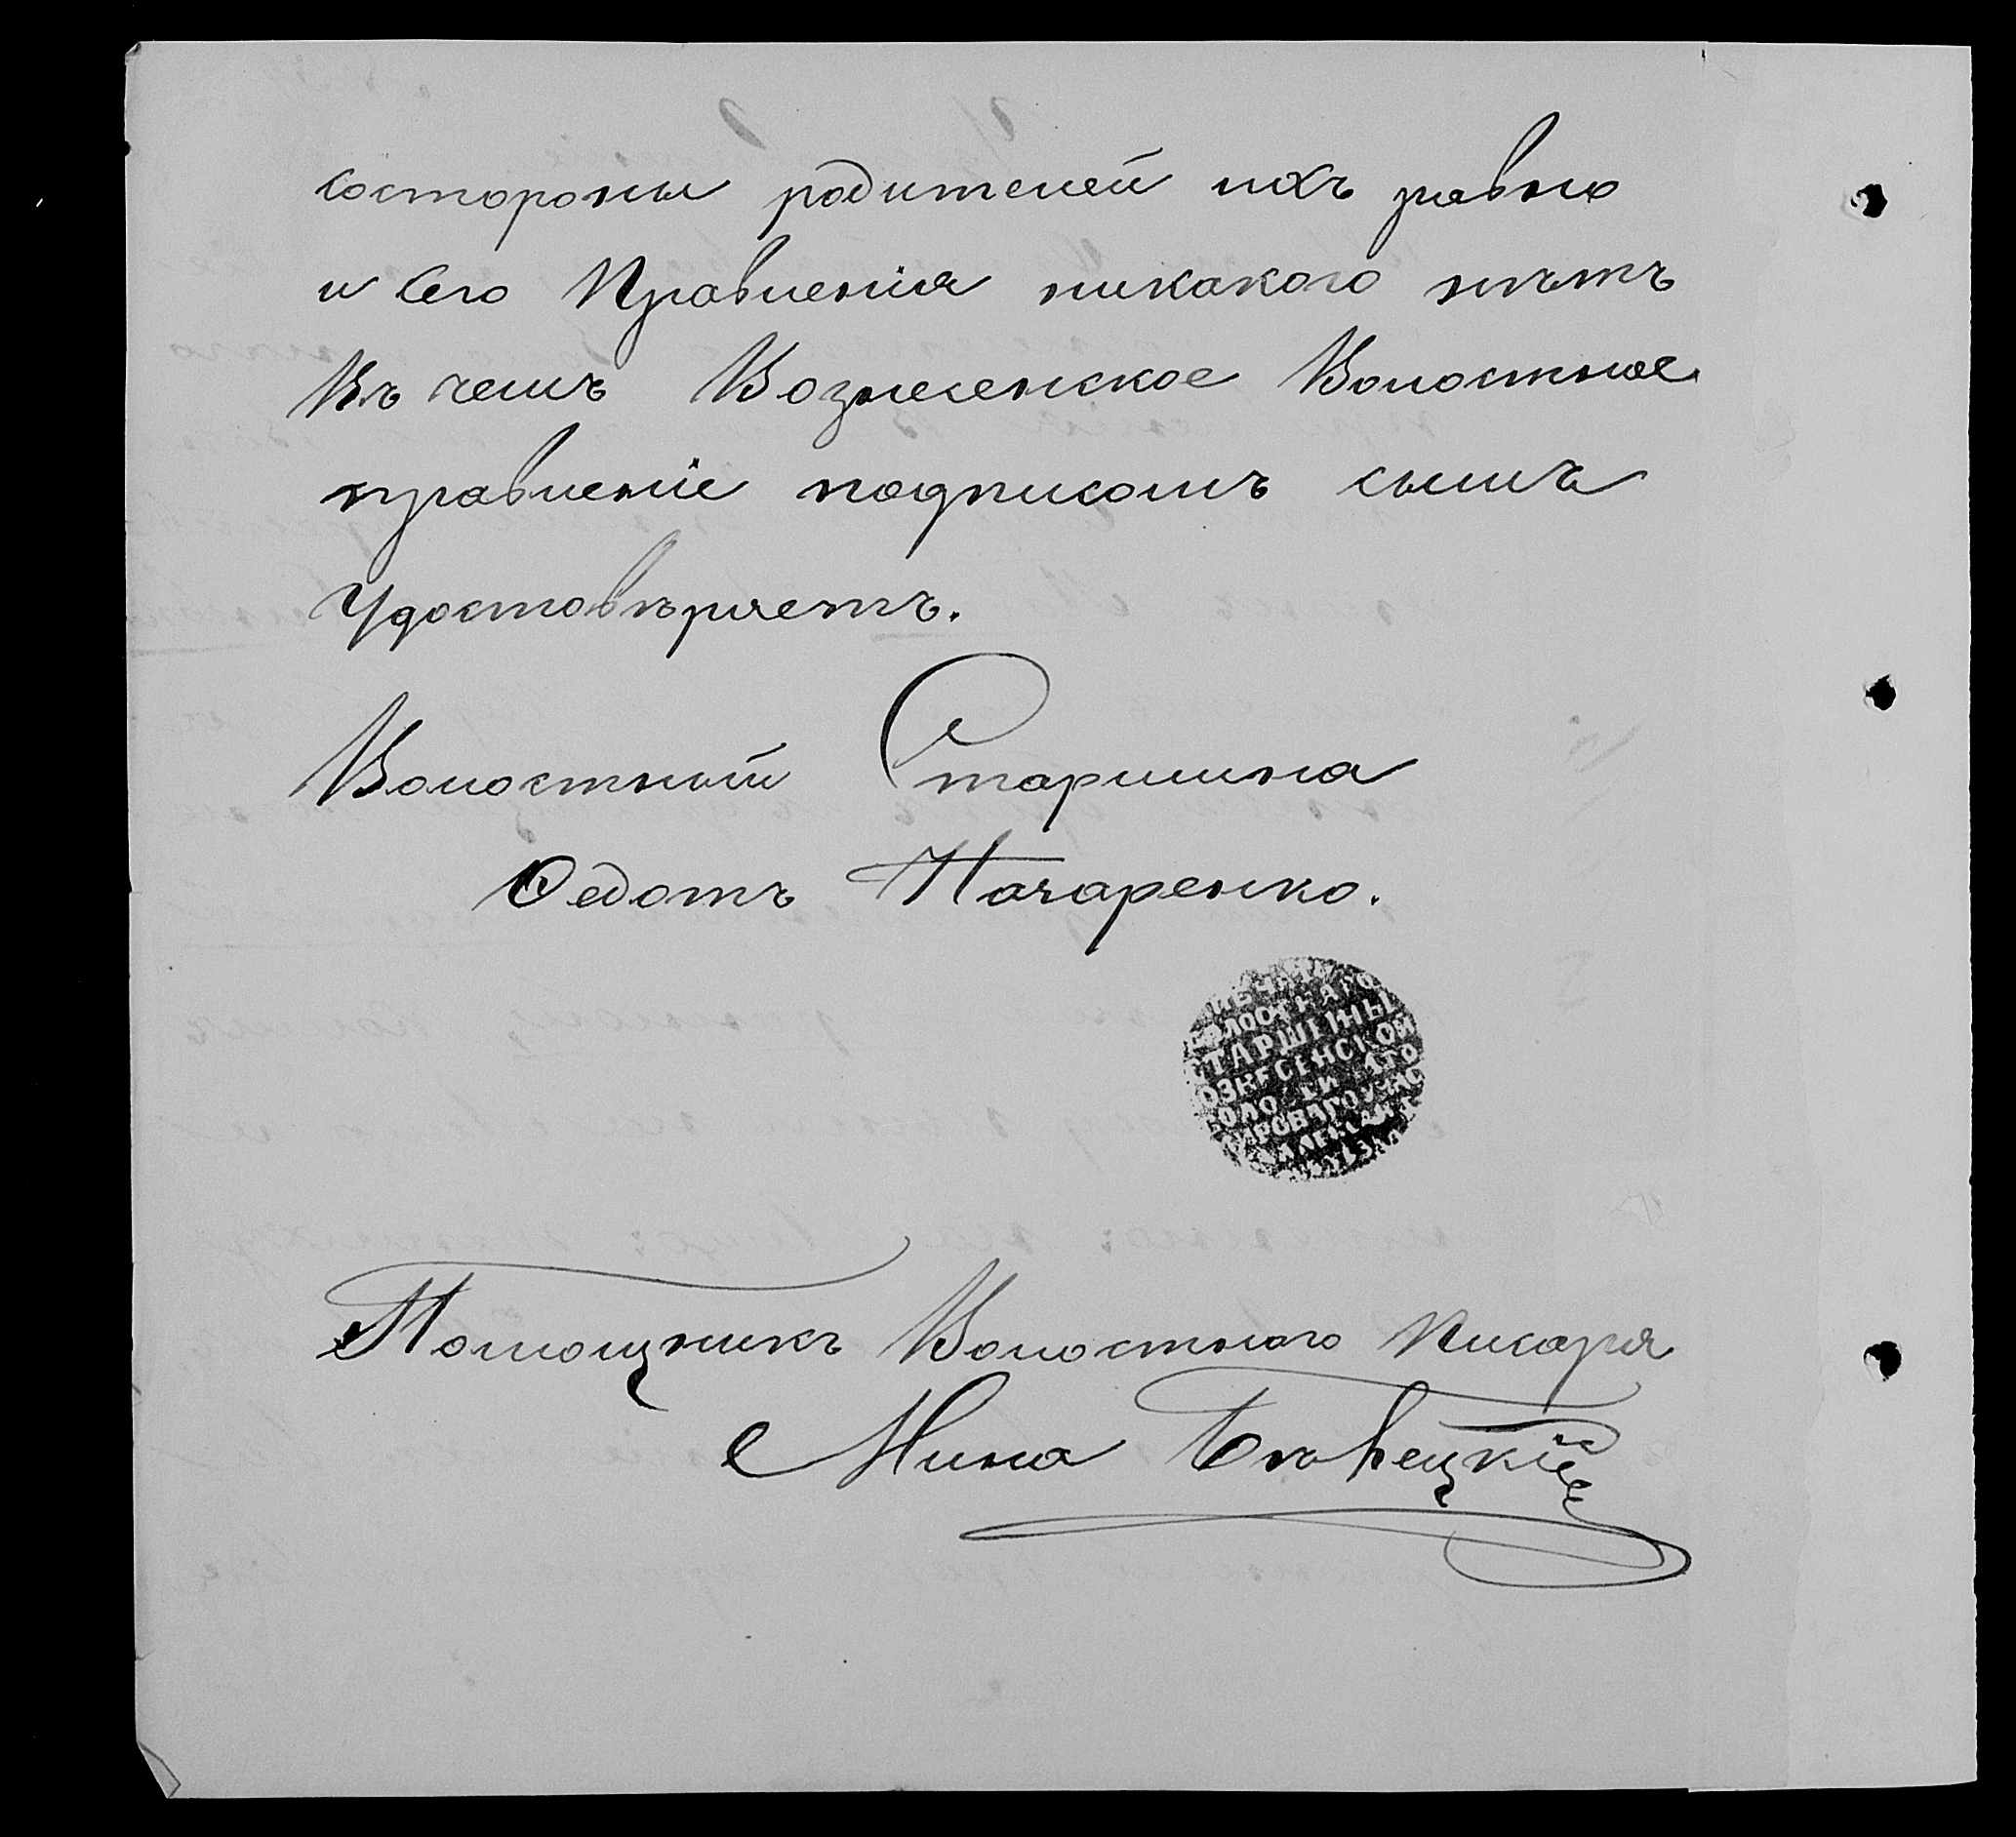 состороны родителей ихъ равно
и сего Правления никакого нѣтъ
Въ чемъ Вознесенское Волостное
правленіе подписомъ симъ
Удостовѣряетъ.
Волостный Старшина
Федотъ Начаренко.
ПЕЧАТЬ
ВОЛОСТНАГО
СТАРШИНЫ
ВОЗНЕСЕНСКОЙ
Помощникъ Волостного Писаря
Мина